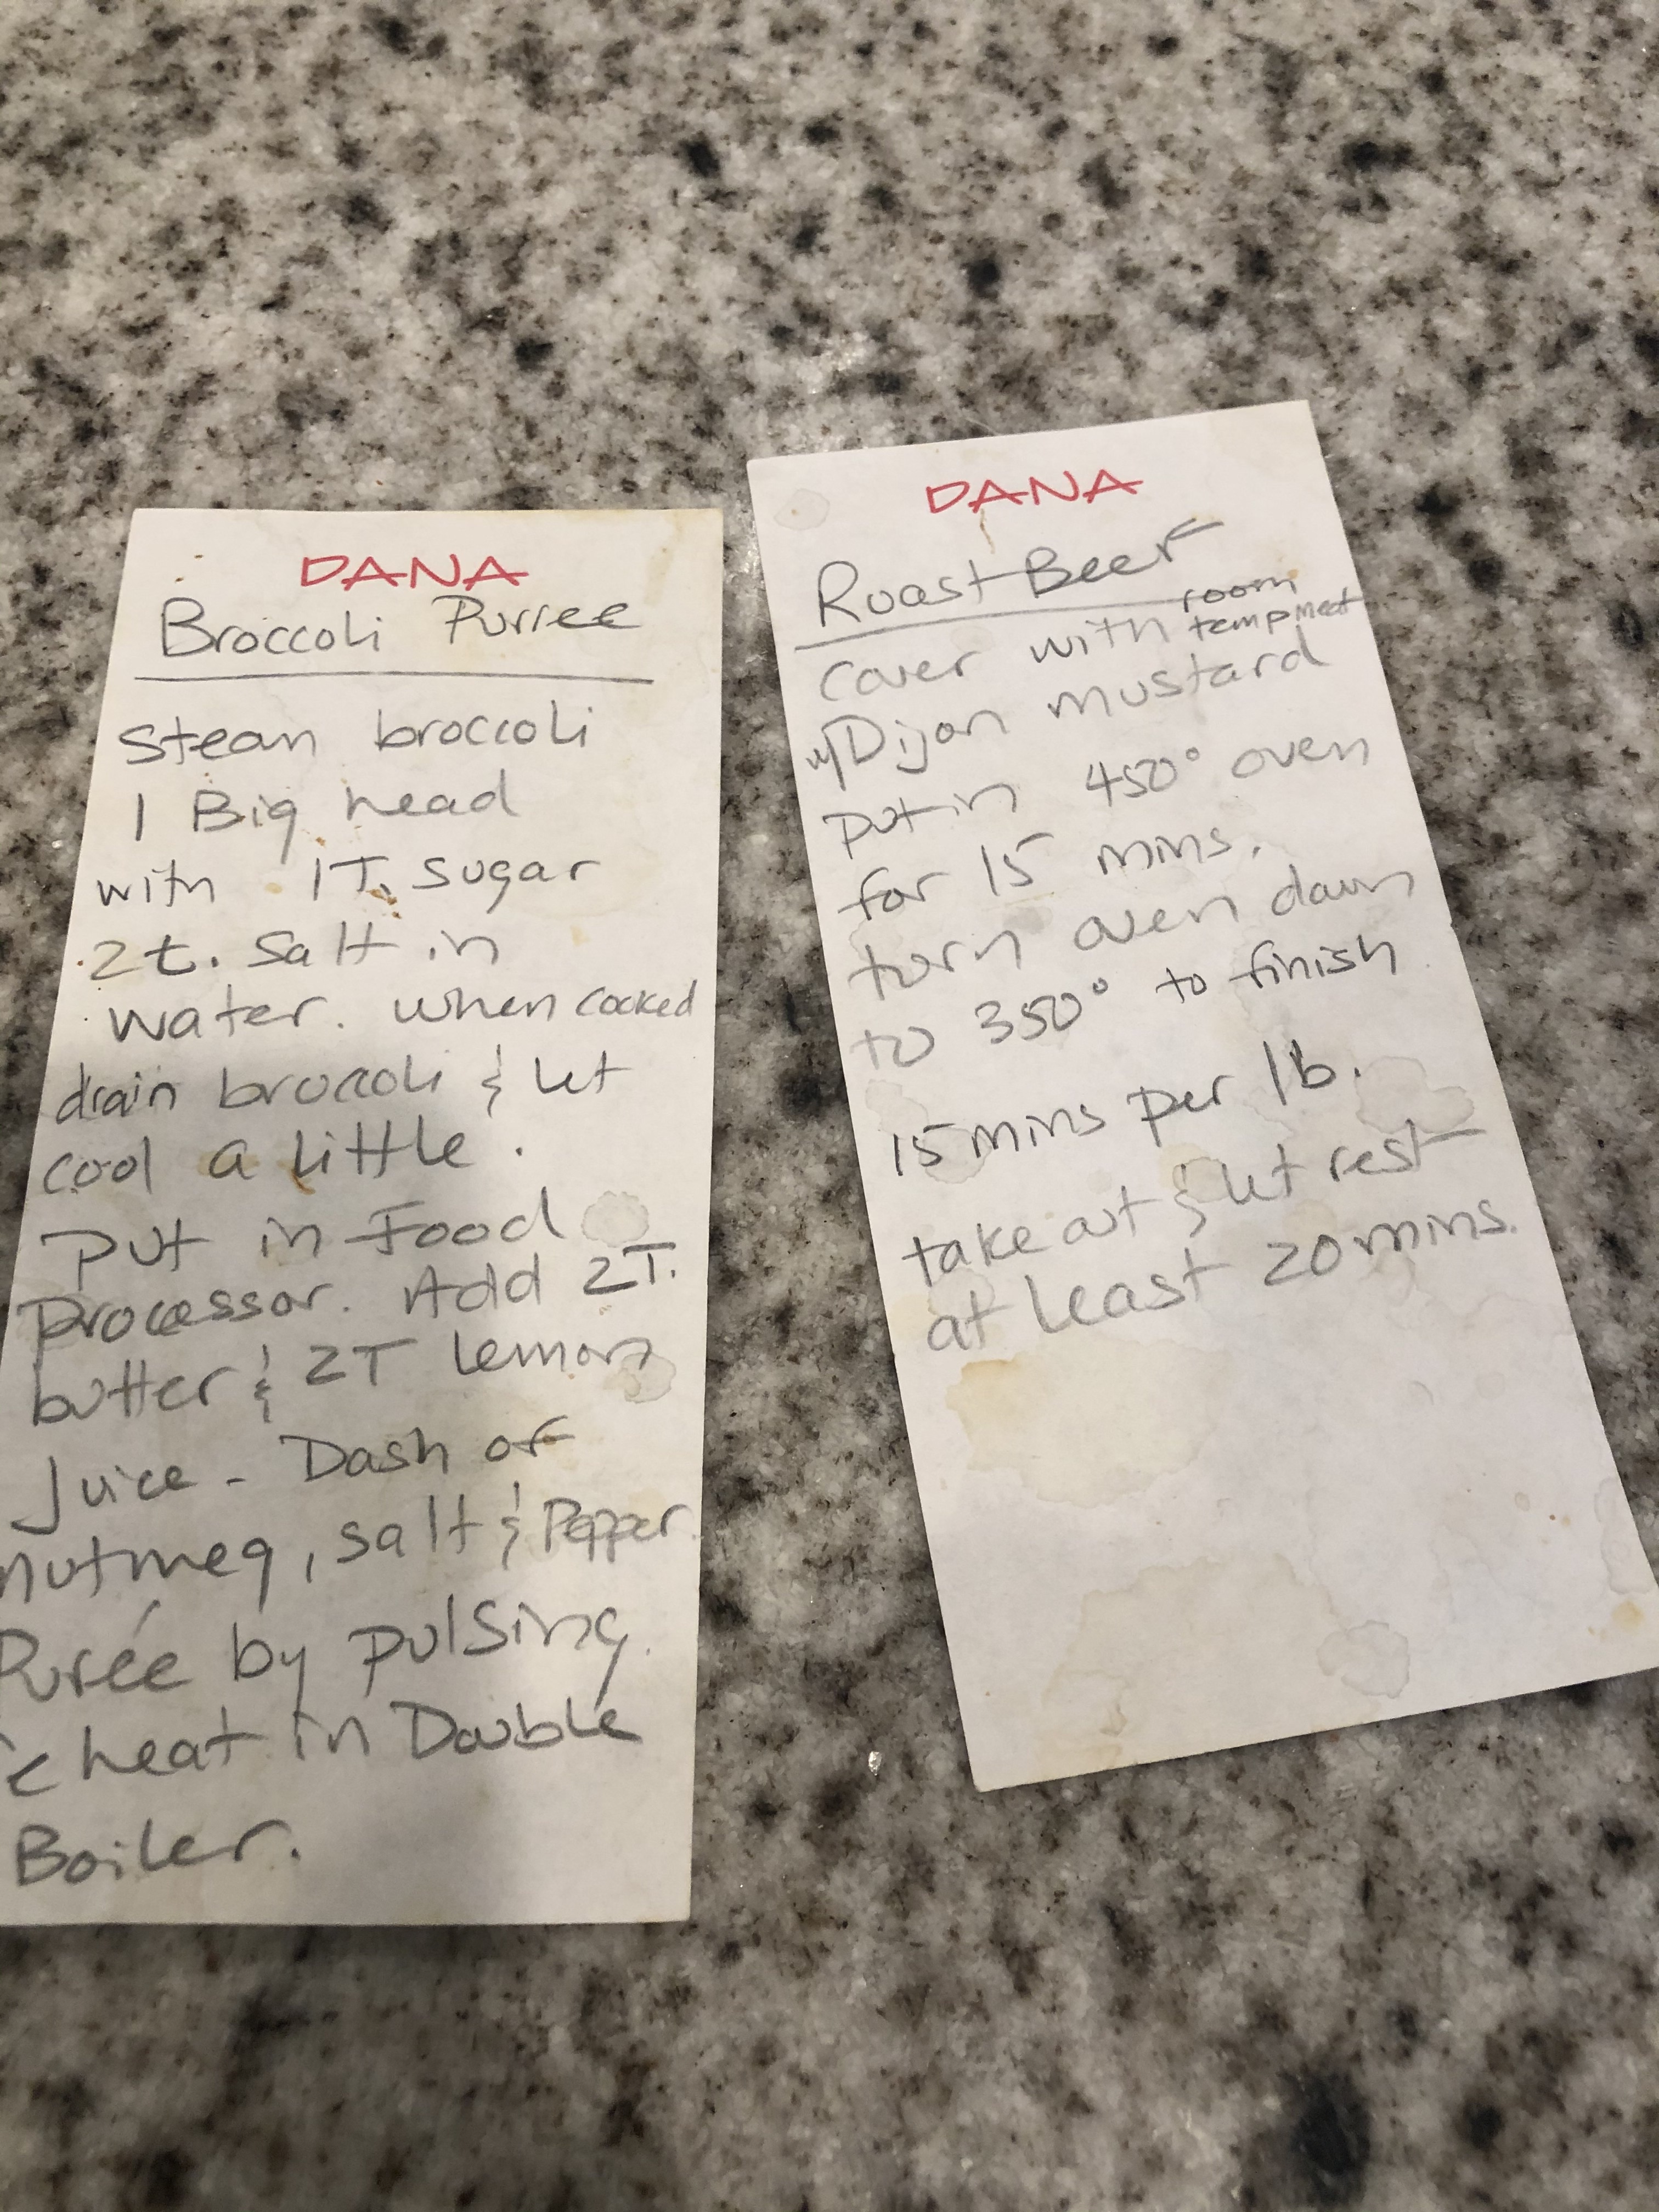 DANA
Broccoli Purree
Steam broccoli
1 Big head
with 1T. sugar
2t. Salt in
water. when cooked
drain broccoli & let
cool a little.
Put in Food
processor. Add 2T.
butter & 2T lemon
Juice - Dash of
Nutmeg, salt & Pepper.
Purée by pulsing.
heat in Double
Boiler.
DANA
Roast Beef
room
cover with temp meat
w/ Dijon mustard
put in 450° oven
for 15 mins.
turn oven down
to 350° to finish
15 mins per lb.
take out & let rest
at least 20 mins.